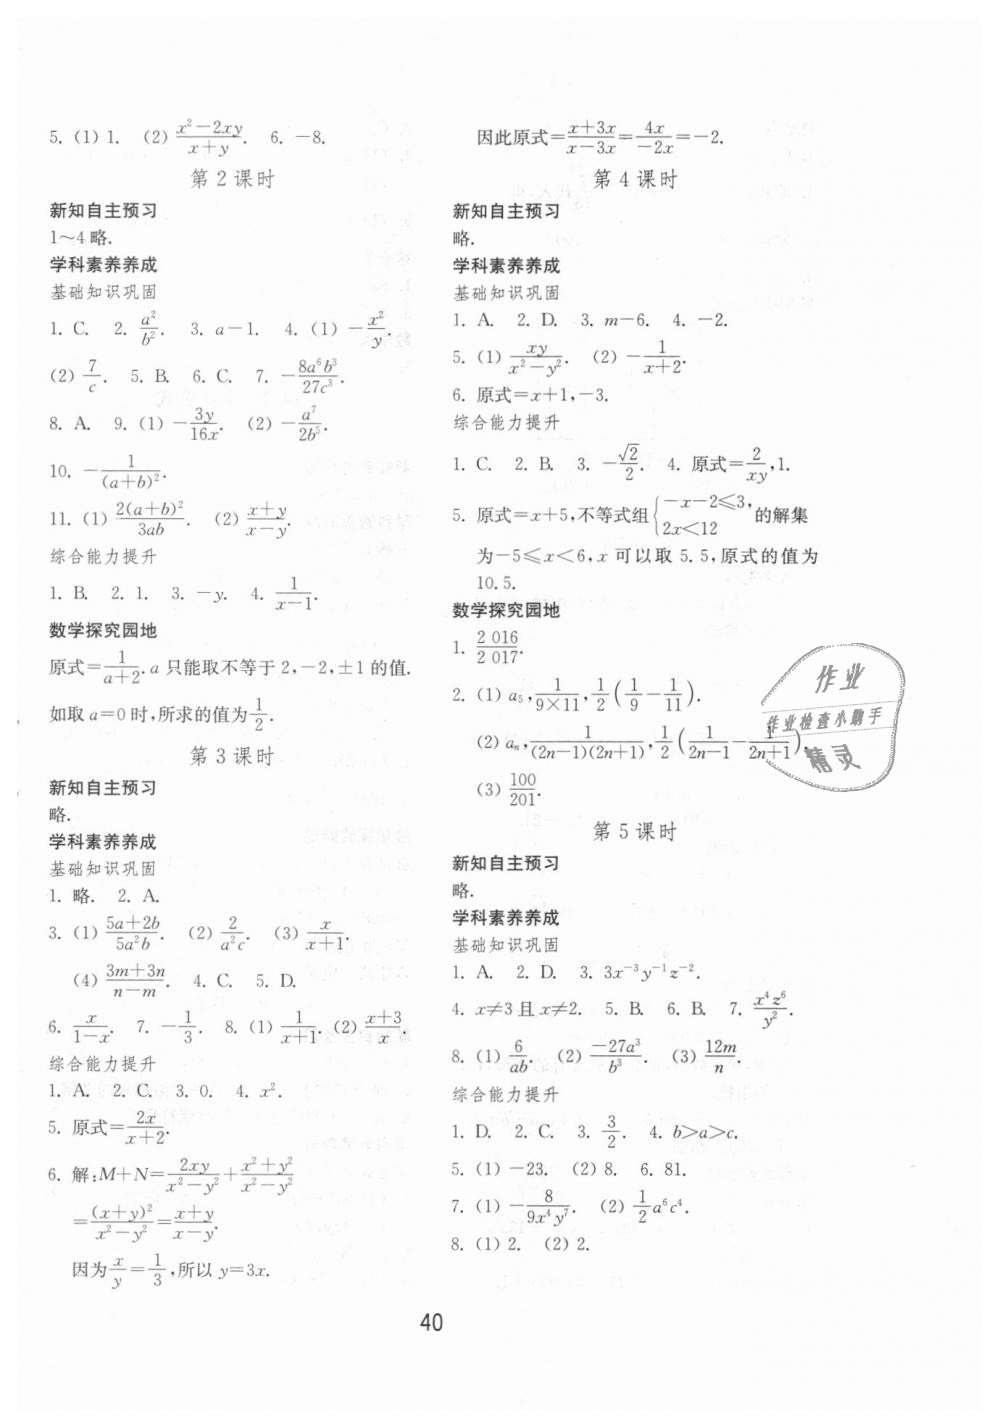 5. (1) 1. (2) $\frac{x^2-2xy}{x+y}$. 6. －8.
第 2 课时
新知自主预习
1～4 略.
学科素养养成
基础知识巩固
1. C. 2. $\frac{a^2}{b^2}$. 3. $a-1$. 4. (1) $-\frac{x^2}{y}$.
(2) $\frac{7}{c}$. 5. B. 6. C. 7. $-\frac{8a^6b^3}{27c^3}$.
8. A. 9. (1) $-\frac{3y}{16x}$. (2) $-\frac{a^7}{2b^5}$.
10. $-\frac{1}{(a+b)^2}$.
11. (1) $\frac{2(a+b)^2}{3ab}$. (2) $\frac{x+y}{x-y}$.
综合能力提升
1. B. 2. 1. 3. $-y$. 4. $\frac{1}{x-1}$.
数学探究园地
原式=$\frac{1}{a+2}$. a 只能取不等于 2,－2,±1 的值.
如取 a=0 时,所求的值为$\frac{1}{2}$.
第 3 课时
新知自主预习
略.
学科素养养成
基础知识巩固
1. 略. 2. A.
3. (1) $\frac{5a+2b}{5a^2b}$. (2) $\frac{2}{a^2c}$. (3) $\frac{x}{x+1}$.
(4) $\frac{3m+3n}{n-m}$. 4. C. 5. D.
6. $\frac{x}{1-x}$. 7. $-\frac{1}{3}$. 8. (1) $\frac{1}{x+1}$. (2) $\frac{x+3}{x}$.
综合能力提升
1. A. 2. C. 3. 0. 4. $x^2$.
5. 原式=$\frac{2x}{x+2}$.
6. 解:M+N=$\frac{2xy}{x^2-y^2}+\frac{x^2+y^2}{x^2-y^2}$
=$\frac{(x+y)^2}{x^2-y^2}=\frac{x+y}{x-y}$.
因为$\frac{x}{y}=\frac{1}{3}$,所以 y=3x.
因此原式=$\frac{x+3x}{x-3x}=\frac{4x}{-2x}=-2$.
第 4 课时
新知自主预习
略.
学科素养养成
基础知识巩固
1. A. 2. D. 3. m－6. 4. －2.
5. (1) $\frac{xy}{x^2-y^2}$. (2) $-\frac{1}{x+2}$.
6. 原式=x+1,－3.
综合能力提升
1. C. 2. B. 3. $-\frac{\sqrt{2}}{2}$. 4. 原式=$\frac{2}{xy}$,1.
5. 原式=x+5,不等式组$\begin{cases}-x-2\leqslant3,\\2x<12\end{cases}$的解集
为－5≤x＜6,x 可以取 5.5,原式的值为
10.5.
数学探究园地
1. $\frac{2\,016}{2\,017}$.
2. (1) $a_5$,$\frac{1}{9\times11}$,$\frac{1}{2}\left(\frac{1}{9}-\frac{1}{11}\right)$.
(2) $a_n$,$\frac{1}{(2n-1)(2n+1)}$,$\frac{1}{2}\left(\frac{1}{2n-1}-\frac{1}{2n+1}\right)$.
(3) $\frac{100}{201}$.
第 5 课时
新知自主预习
略.
学科素养养成
基础知识巩固
1. A. 2. D. 3. $3x^{-3}y^{-1}z^{-2}$.
4. x≠3 且 x≠2. 5. B. 6. B. 7. $\frac{x^4z^6}{y^2}$.
8. (1) $\frac{6}{ab}$. (2) $\frac{-27a^3}{b^3}$. (3) $\frac{12m}{n}$.
综合能力提升
1. D. 2. C. 3. $\frac{3}{2}$. 4. b＞a＞c.
5. (1) －23. (2) 8. 6. 81.
7. (1) $-\frac{8}{9x^4y^7}$. (2) $\frac{1}{2}a^6c^4$.
8. (1) 2. (2) 2.
作业
作业检查小助手
精灵
40